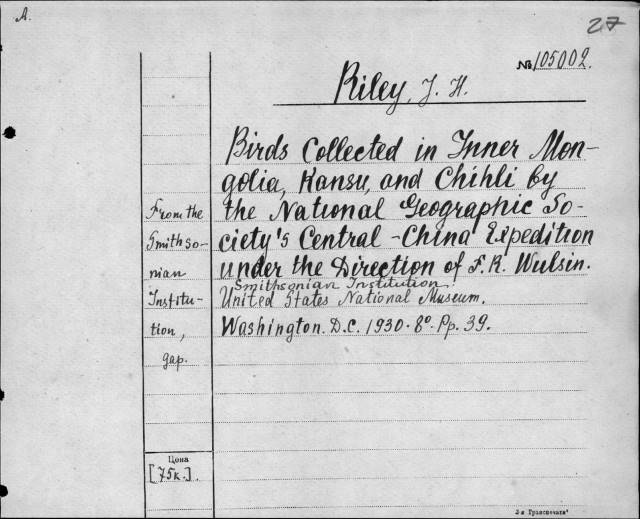 A.
27
№ 105002.
Riley, J. H.
Birds Collected in Inner Mon-
golia, Kansu, and Chihli by
the National Geographic So-
ciety's Central-China Expedition
under the Direction of F. R. Wulsin.
Smithsonian Institution.
United States National Museum.
Washington. D.C. 1930. 8°. Pp. 39.
From the
Smithso-
nian
Institu-
tion,
gap.
Цена
[75к.].
3-я Гранпечата